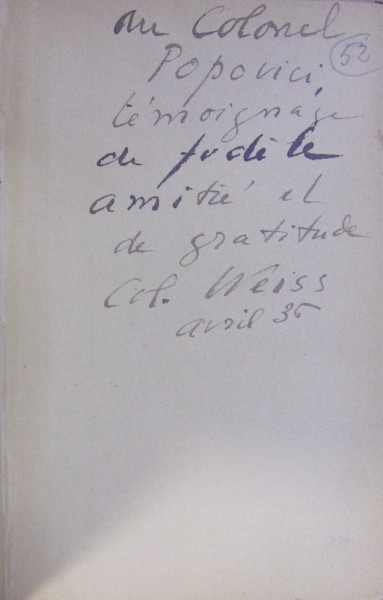 Au Colonel
52
Popovici,
témoignage
de fidèle
amitié et
de gratitude
Col. Weiss
avril 35